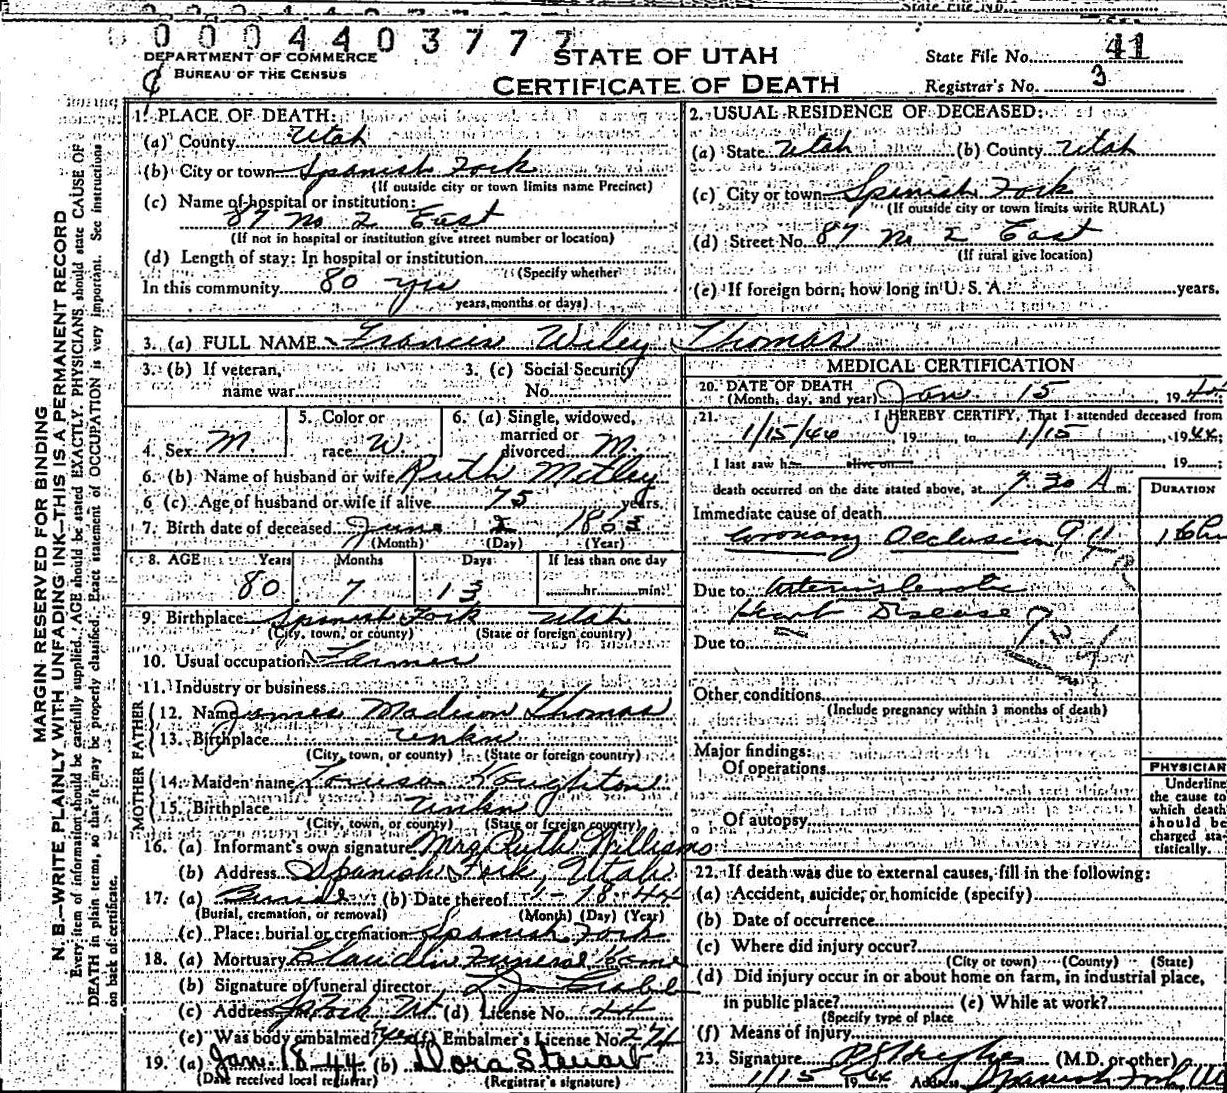 0004403777
DEPARTMENT OF COMMERCE
BUREAU OF THE CENSUS
STATE OF UTAH
CERTIFICATE OF DEATH
State File No. 41
Registrar's No. 3
MARGIN RESERVED FOR BINDING
N. B.—WRITE PLAINLY WITH UNFADING INK—THIS IS A PERMANENT RECORD
Every item of information should be carefully supplied. AGE should be stated EXACTLY. PHYSICIANS should state CAUSE OF
DEATH in plain terms, so that it may be properly classified. Exact statement of OCCUPATION is very important. See instructions
on back of certificate.
1. PLACE OF DEATH:
(a) County Utah
(b) City or town Spanish Fork
(If outside city or town limits name Precinct)
(c) Name of hospital or institution:
87 No 2 East
(If not in hospital or institution give street number or location)
(d) Length of stay: In hospital or institution
(Specify whether
In this community 80 yrs
years, months or days)
2. USUAL RESIDENCE OF DECEASED:
(a) State Utah (b) County Utah
(c) City or town Spanish Fork
(If outside city or town limits write RURAL)
(d) Street No. 87 No 2 East
(If rural give location)
(e) If foreign born, how long in U. S. A. years.
3. (a) FULL NAME Francis Wiley Thomas
3. (b) If veteran,
name war
3. (c) Social Security
No.
4. Sex M.
5. Color or
race W.
6. (a) Single, widowed,
married or
divorced M.
6. (b) Name of husband or wife Ruth
6 (c) Age of husband or wife if alive 75 years.
7. Birth date of deceased June 2 1863
(Month) (Day) (Year)
8. AGE Years Months Days If less than one day
80 7 13 hr. min.
9. Birthplace Spanish Fork Utah
(City, town, or county) (State or foreign country)
10. Usual occupation Farmer
11. Industry or business
FATHER
12. Name James Madison Thomas
13. Birthplace unkn
(City, town, or county) (State or foreign country)
MOTHER
14. Maiden name Louisa Houghton
15. Birthplace unkn
(City, town, or county) (State or foreign country)
16. (a) Informant's own signature Mrs Ruth Williams
(b) Address Spanish Fork, Utah
17. (a) Burial (b) Date thereof 1-18-44
(Burial, cremation, or removal) (Month) (Day) (Year)
(c) Place: burial or cremation Spanish Fork
18. (a) Mortuary Claudin Funeral Home
(b) Signature of funeral director
(c) Address Sp Fork Ut. (d) License No. 44
(e) Was body embalmed? yes (f) Embalmer's License No. 274
19. (a) Jan. 18-44 (b) Dora Stewart
(Date received local registrar) (Registrar's signature)
MEDICAL CERTIFICATION
20. DATE OF DEATH
(Month, day, and year) Jan 15, 1944
21. I HEREBY CERTIFY, That I attended deceased from
1/15/44, 19 to 1/15, 1944;
I last saw h alive on , 19 ;
death occurred on the date stated above, at 7 30 A m.
DURATION
Immediate cause of death
Coronary Occlusion
Due to Arteriosclerotic
Heart Disease
Due to
Other conditions
(Include pregnancy within 3 months of death)
Major findings:
Of operations
Of autopsy
PHYSICIAN
Underline
the cause to
which death
should be
charged sta-
tistically.
22. If death was due to external causes, fill in the following:
(a) Accident, suicide, or homicide (specify)
(b) Date of occurrence
(c) Where did injury occur?
(City or town) (County) (State)
(d) Did injury occur in or about home on farm, in industrial place,
in public place? (e) While at work?
(Specify type of place
(f) Means of injury
23. Signature (M.D. or other)
1/15 1944 Address Spanish Fork, Ut